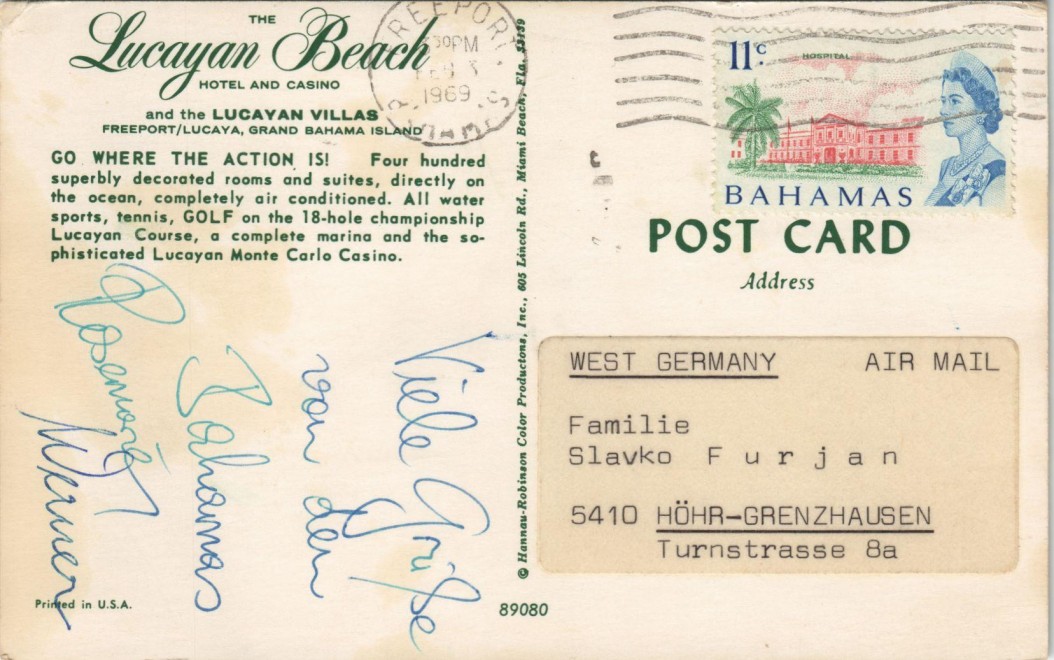 THE
Lucayan Beach
HOTEL AND CASINO
and the LUCAYAN VILLAS
FREEPORT/LUCAYA, GRAND BAHAMA ISLAND
GO WHERE THE ACTION IS! Four hundred
superbly decorated rooms and suites, directly on
the ocean, completely air conditioned. All water
sports, tennis, GOLF on the 18-hole championship
Lucayan Course, a complete marina and the so-
phisticated Lucayan Monte Carlo Casino.
Viele Grüße
von den
Bahamas
Rosemarie
Werner
Printed in U.S.A.
89080
© Hannau-Robinson Color Productons, Inc., 605 Lincoln Rd., Miami Beach, Fla. 33139
FREEPORT
30PM
FEB 3
1969
BAHAMAS
11c
HOSPITAL
BAHAMAS
POST CARD
Address
WEST GERMANY AIR MAIL
Familie
Slavko Furjan
5410 HÖHR-GRENZHAUSEN
Turnstrasse 8a